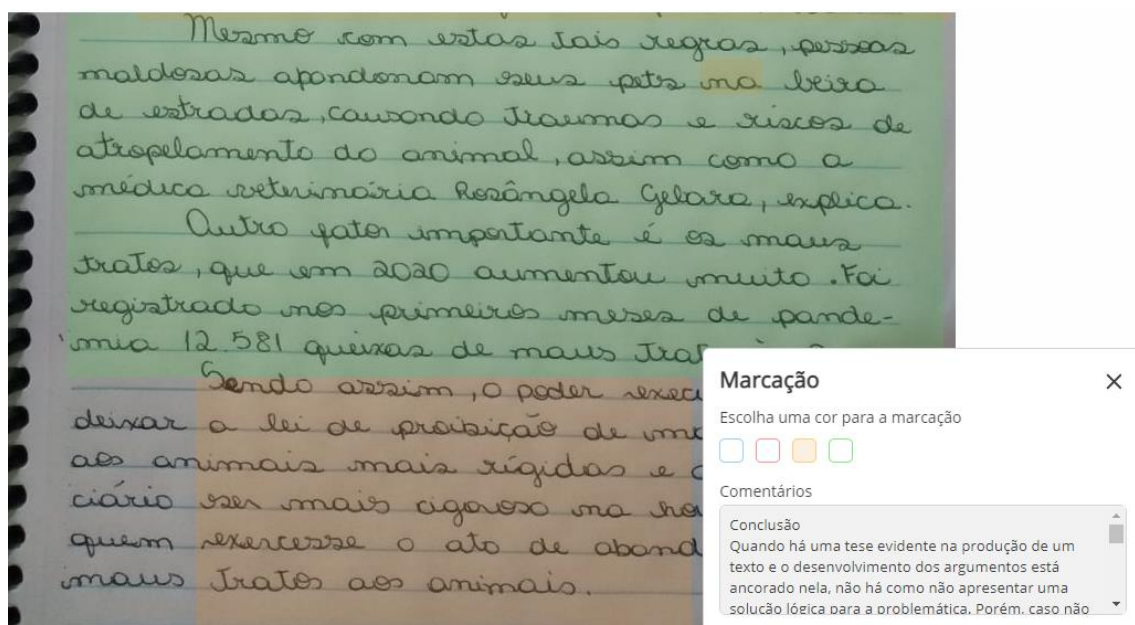 Mesmo com estas tais regras, pessoas
maldosas apondonam seus pets na beira
de estradas, causando traumas e riscos de
atropelamento do animal, assim como a
médica veterinária Rosângela Gelara, explica.
Outro fator importante é os maus
tratos, que em 2020 aumentou muito. Foi
registrado nos primeiros meses de pande-
mia 12.581 queixas de maus trat
Sendo assim, o poder execu
deixar a lei de proibição de
aos animais mais rígidas e
ciário ser mais rigoroso na
quem exercesse o ato de aband
maus tratos aos animais.
Marcação
Escolha uma cor para a marcação
Comentários
Conclusão
Quando há uma tese evidente na produção de um
texto e o desenvolvimento dos argumentos está
ancorado nela, não há como não apresentar uma
solução lógica para a problemática. Porém, caso não